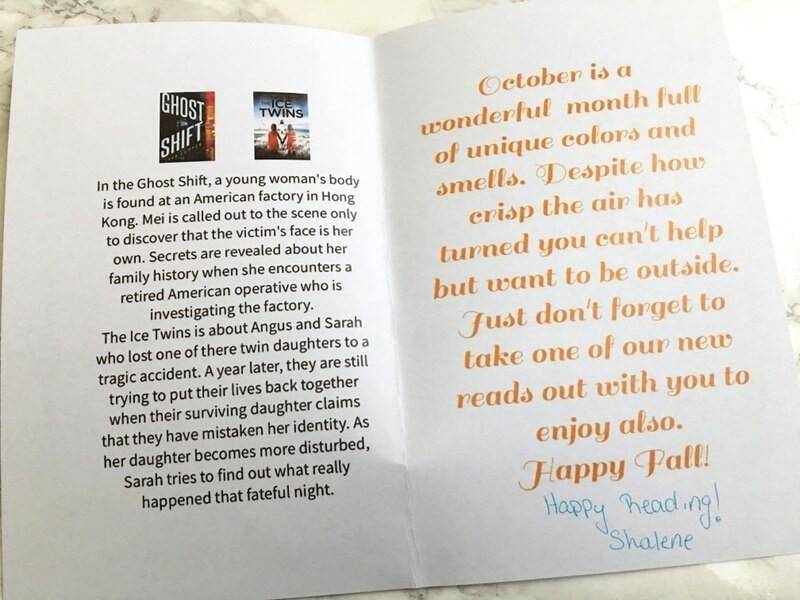 GHOST
SHIFT
THE ICE
TWINS
In the Ghost Shift, a young woman's body
is found at an American factory in Hong
Kong. Mei is called out to the scene only
to discover that the victim's face is her
own. Secrets are revealed about her
family history when she encounters a
retired American operative who is
investigating the factory.
The Ice Twins is about Angus and Sarah
who lost one of there twin daughters to a
tragic accident. A year later, they are still
trying to put their lives back together
when their surviving daughter claims
that they have mistaken her identity. As
her daughter becomes more disturbed,
Sarah tries to find out what really
happened that fateful night.
October is a
wonderful month full
of unique colors and
smells. Despite how
crisp the air has
turned you can't help
but want to be outside.
Just don't forget to
take one of our new
reads out with you to
enjoy also.
Happy Fall!
Happy Reading!
Shalene